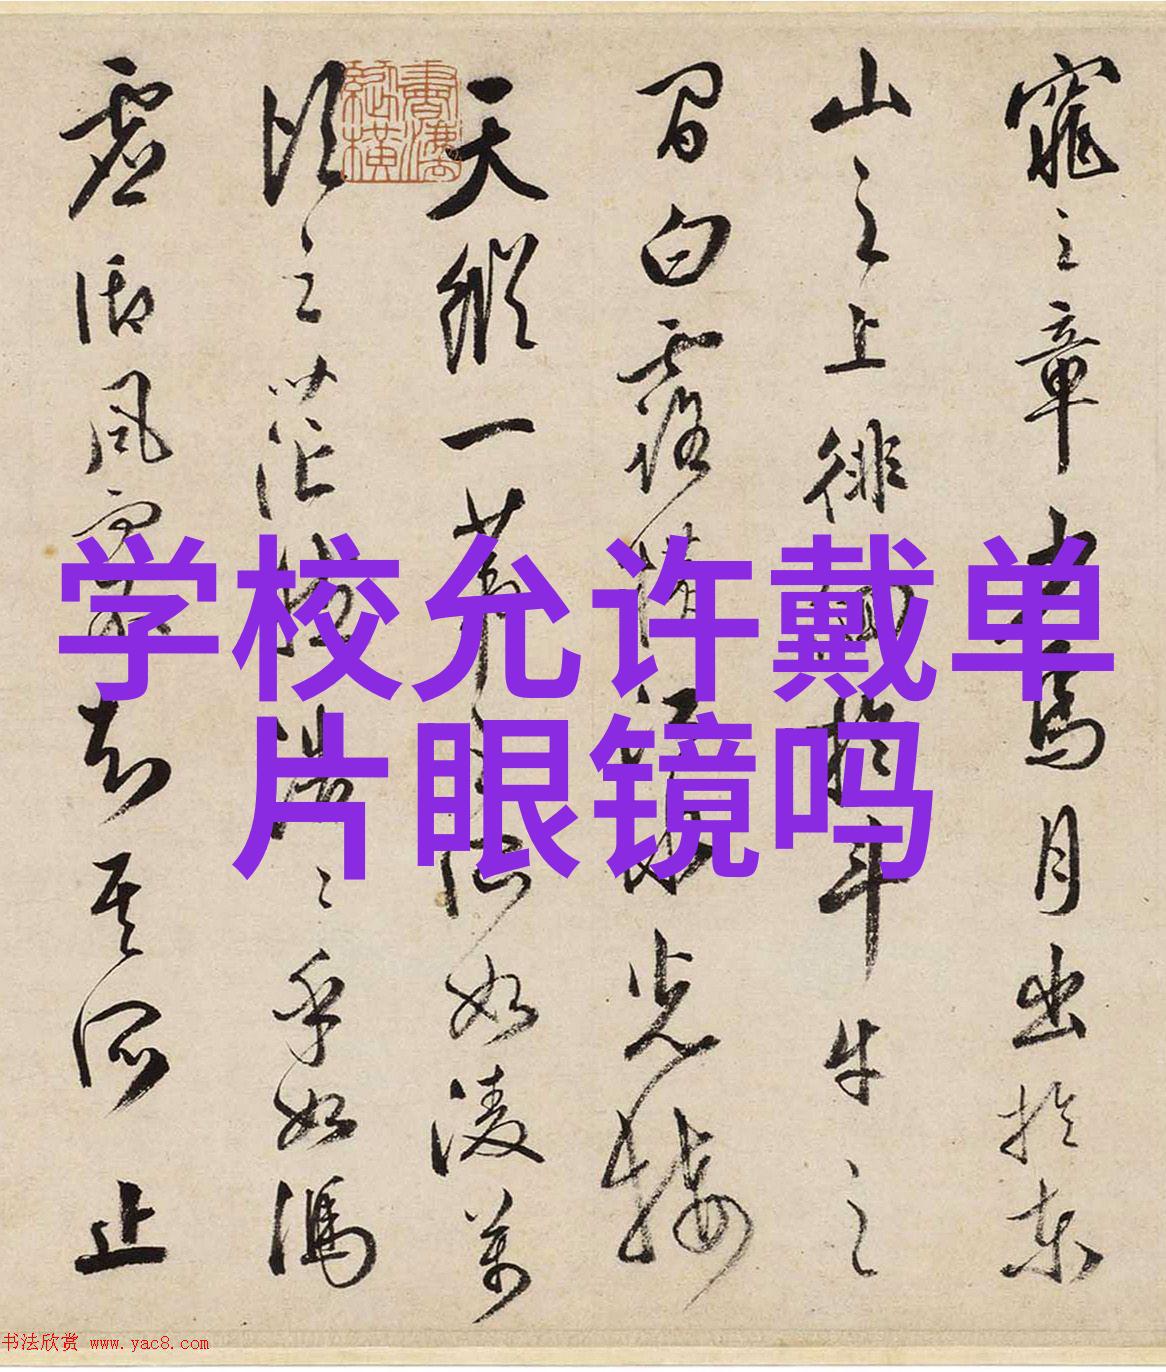 窕之章少焉月出於東
山之上徘徊於斗牛之
間白露橫江水光接
天縱一葦之所如凌萬
頃之茫然浩々乎如馮
虛御風而不知其所止
学校允许戴单
片眼镜吗
书法欣赏 www.yac8.com